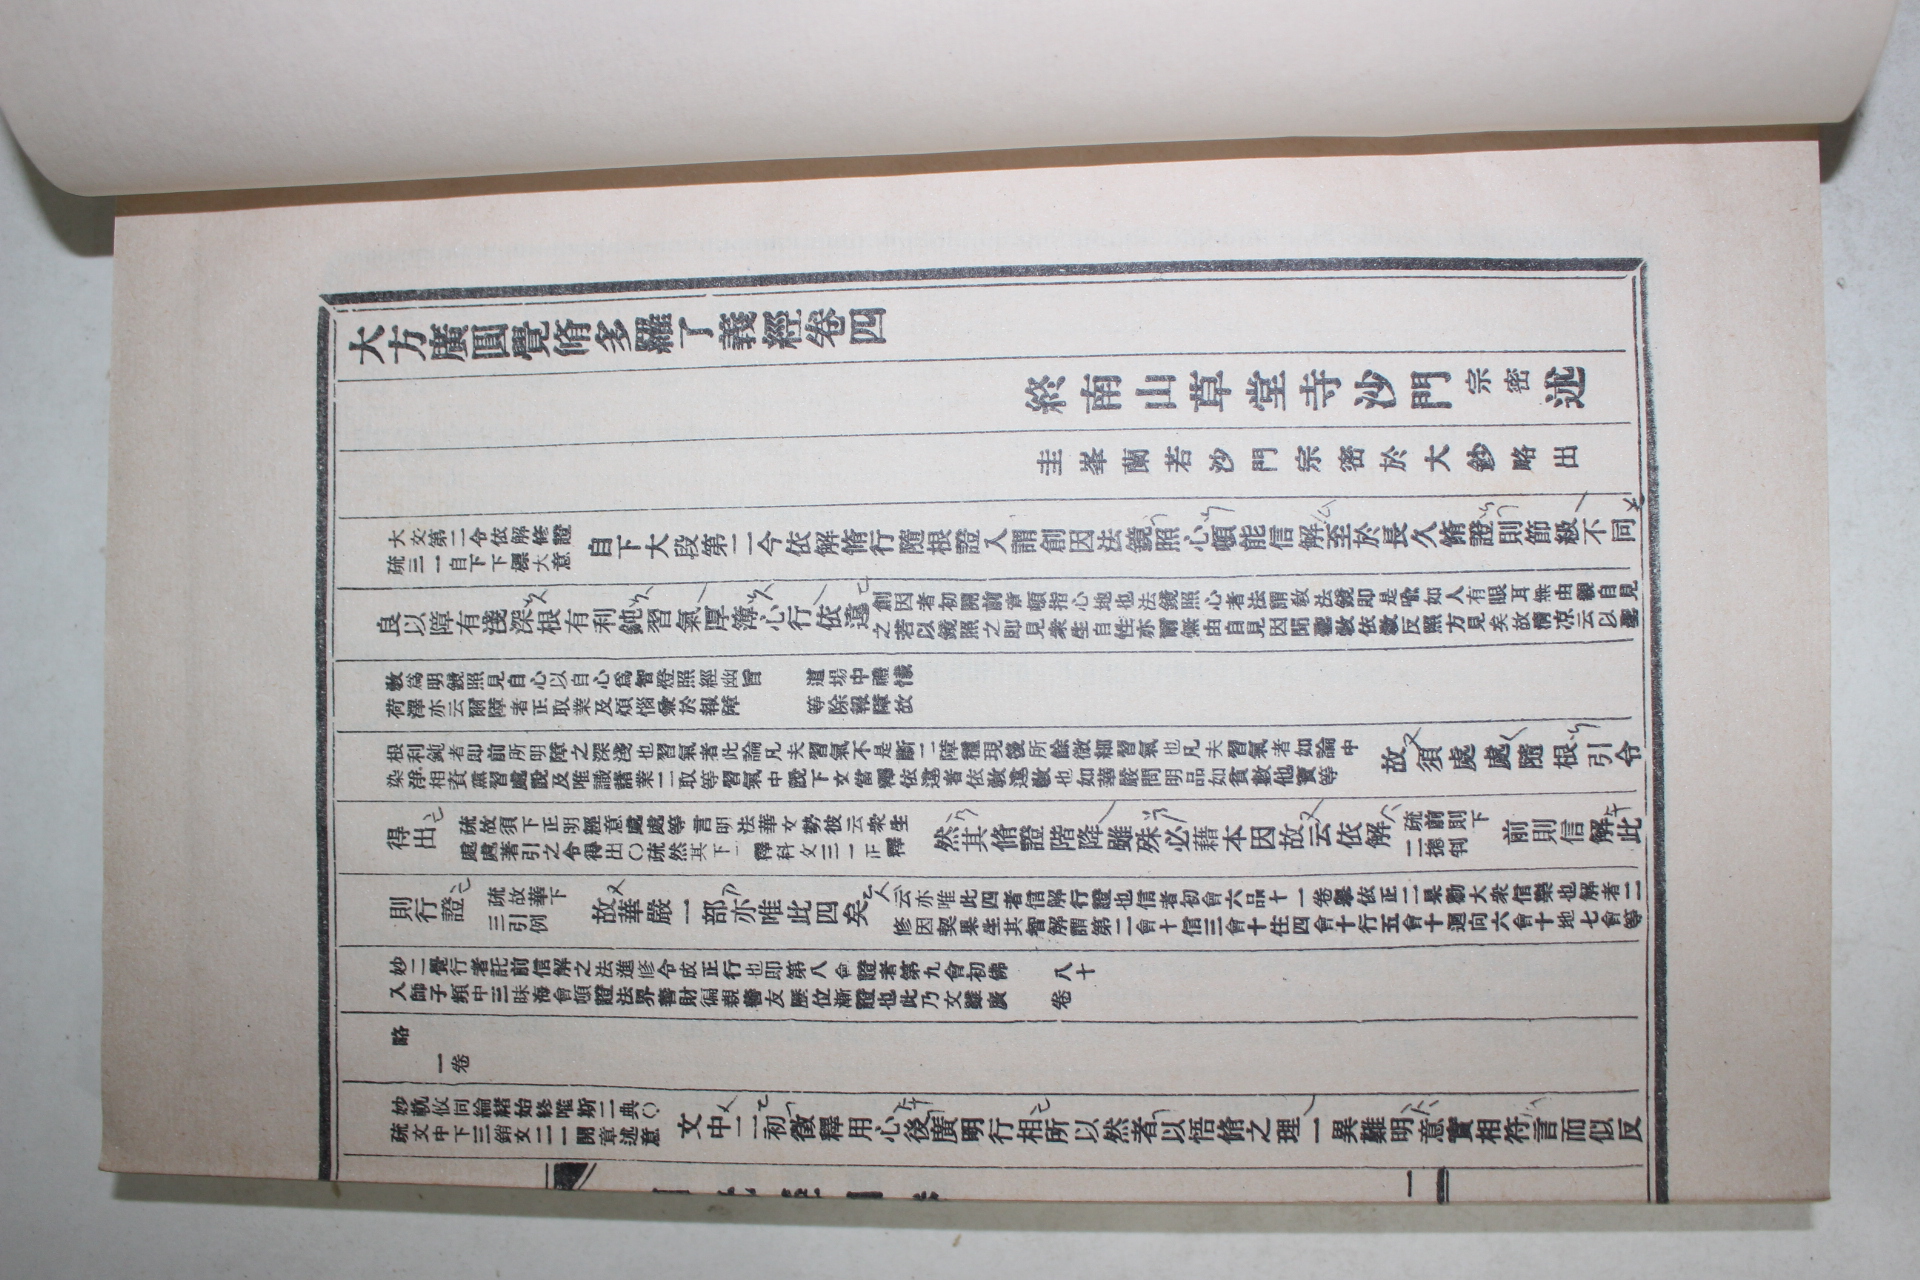 大方廣圓覺脩多羅了義經卷四
終南山草堂寺沙門宗密述
圭峯蘭若沙門宗密於大鈔略出
大文第二令依解修證
疏三一自下下標大意
自下大段第二今依解脩行隨根證入謂創因法鏡照心頓能信解至於長久脩證則節級不同
良以障有淺深根有利鈍習氣厚簿心行依違
創因者初開前章頓指心地也法鏡照心者法謂敎法鏡即是喩如人有眼耳無由親自見
之若以鏡照之即見衆生自性亦爾無由自見因聞聖敎依敎反照方見矣故淸凉云以聖
敎爲明鏡照見自心以自心爲智燈照經幽旨
荷澤亦云爾障者正取業及煩惱彙於報障
道場中禮懺
等除報障故
根利鈍者即前所明障之深淺也習氣者此論凡夫習氣不是斷二障種現後所餘微細習氣也凡夫習氣者如論中
染淨相資薰習處說及唯識諸業二取等習氣中說下文當釋依違者依敎違敎也如華嚴問明品如貧數他寶等
故須處處隨根引令
得出
疏故須下正明經意處處等言明法華文勢彼云衆生
處處著引之令得出〇疏然其下二釋科文三一正釋
然其脩證階降雖殊必藉本因故云依解
疏前則下
二摠判
前則信解此
則行證
疏故華下
三引例
故華嚴一部亦唯此四矣
云亦唯此四者信解行證也信者初會六品十一卷擧依正二果勸大衆信樂也解者二
修因契果生其智解謂第二會十信三會十住四會十行五會十迴向六會十地七會等
妙二覺行者託前信解之法進修令成正行也即第八會證者第九會初佛
入師子頻中三昧海會頓證法界善財徧親善友歷位漸證也此乃文雖廣
八十
卷
略
一卷
妙軌攸同綸緖始終唯斯二典〇
疏文中下三銷文二一開章述意
文中二初徵釋用心後廣明行相所以然者以悟脩之理一異難明意實相符言而似反
一